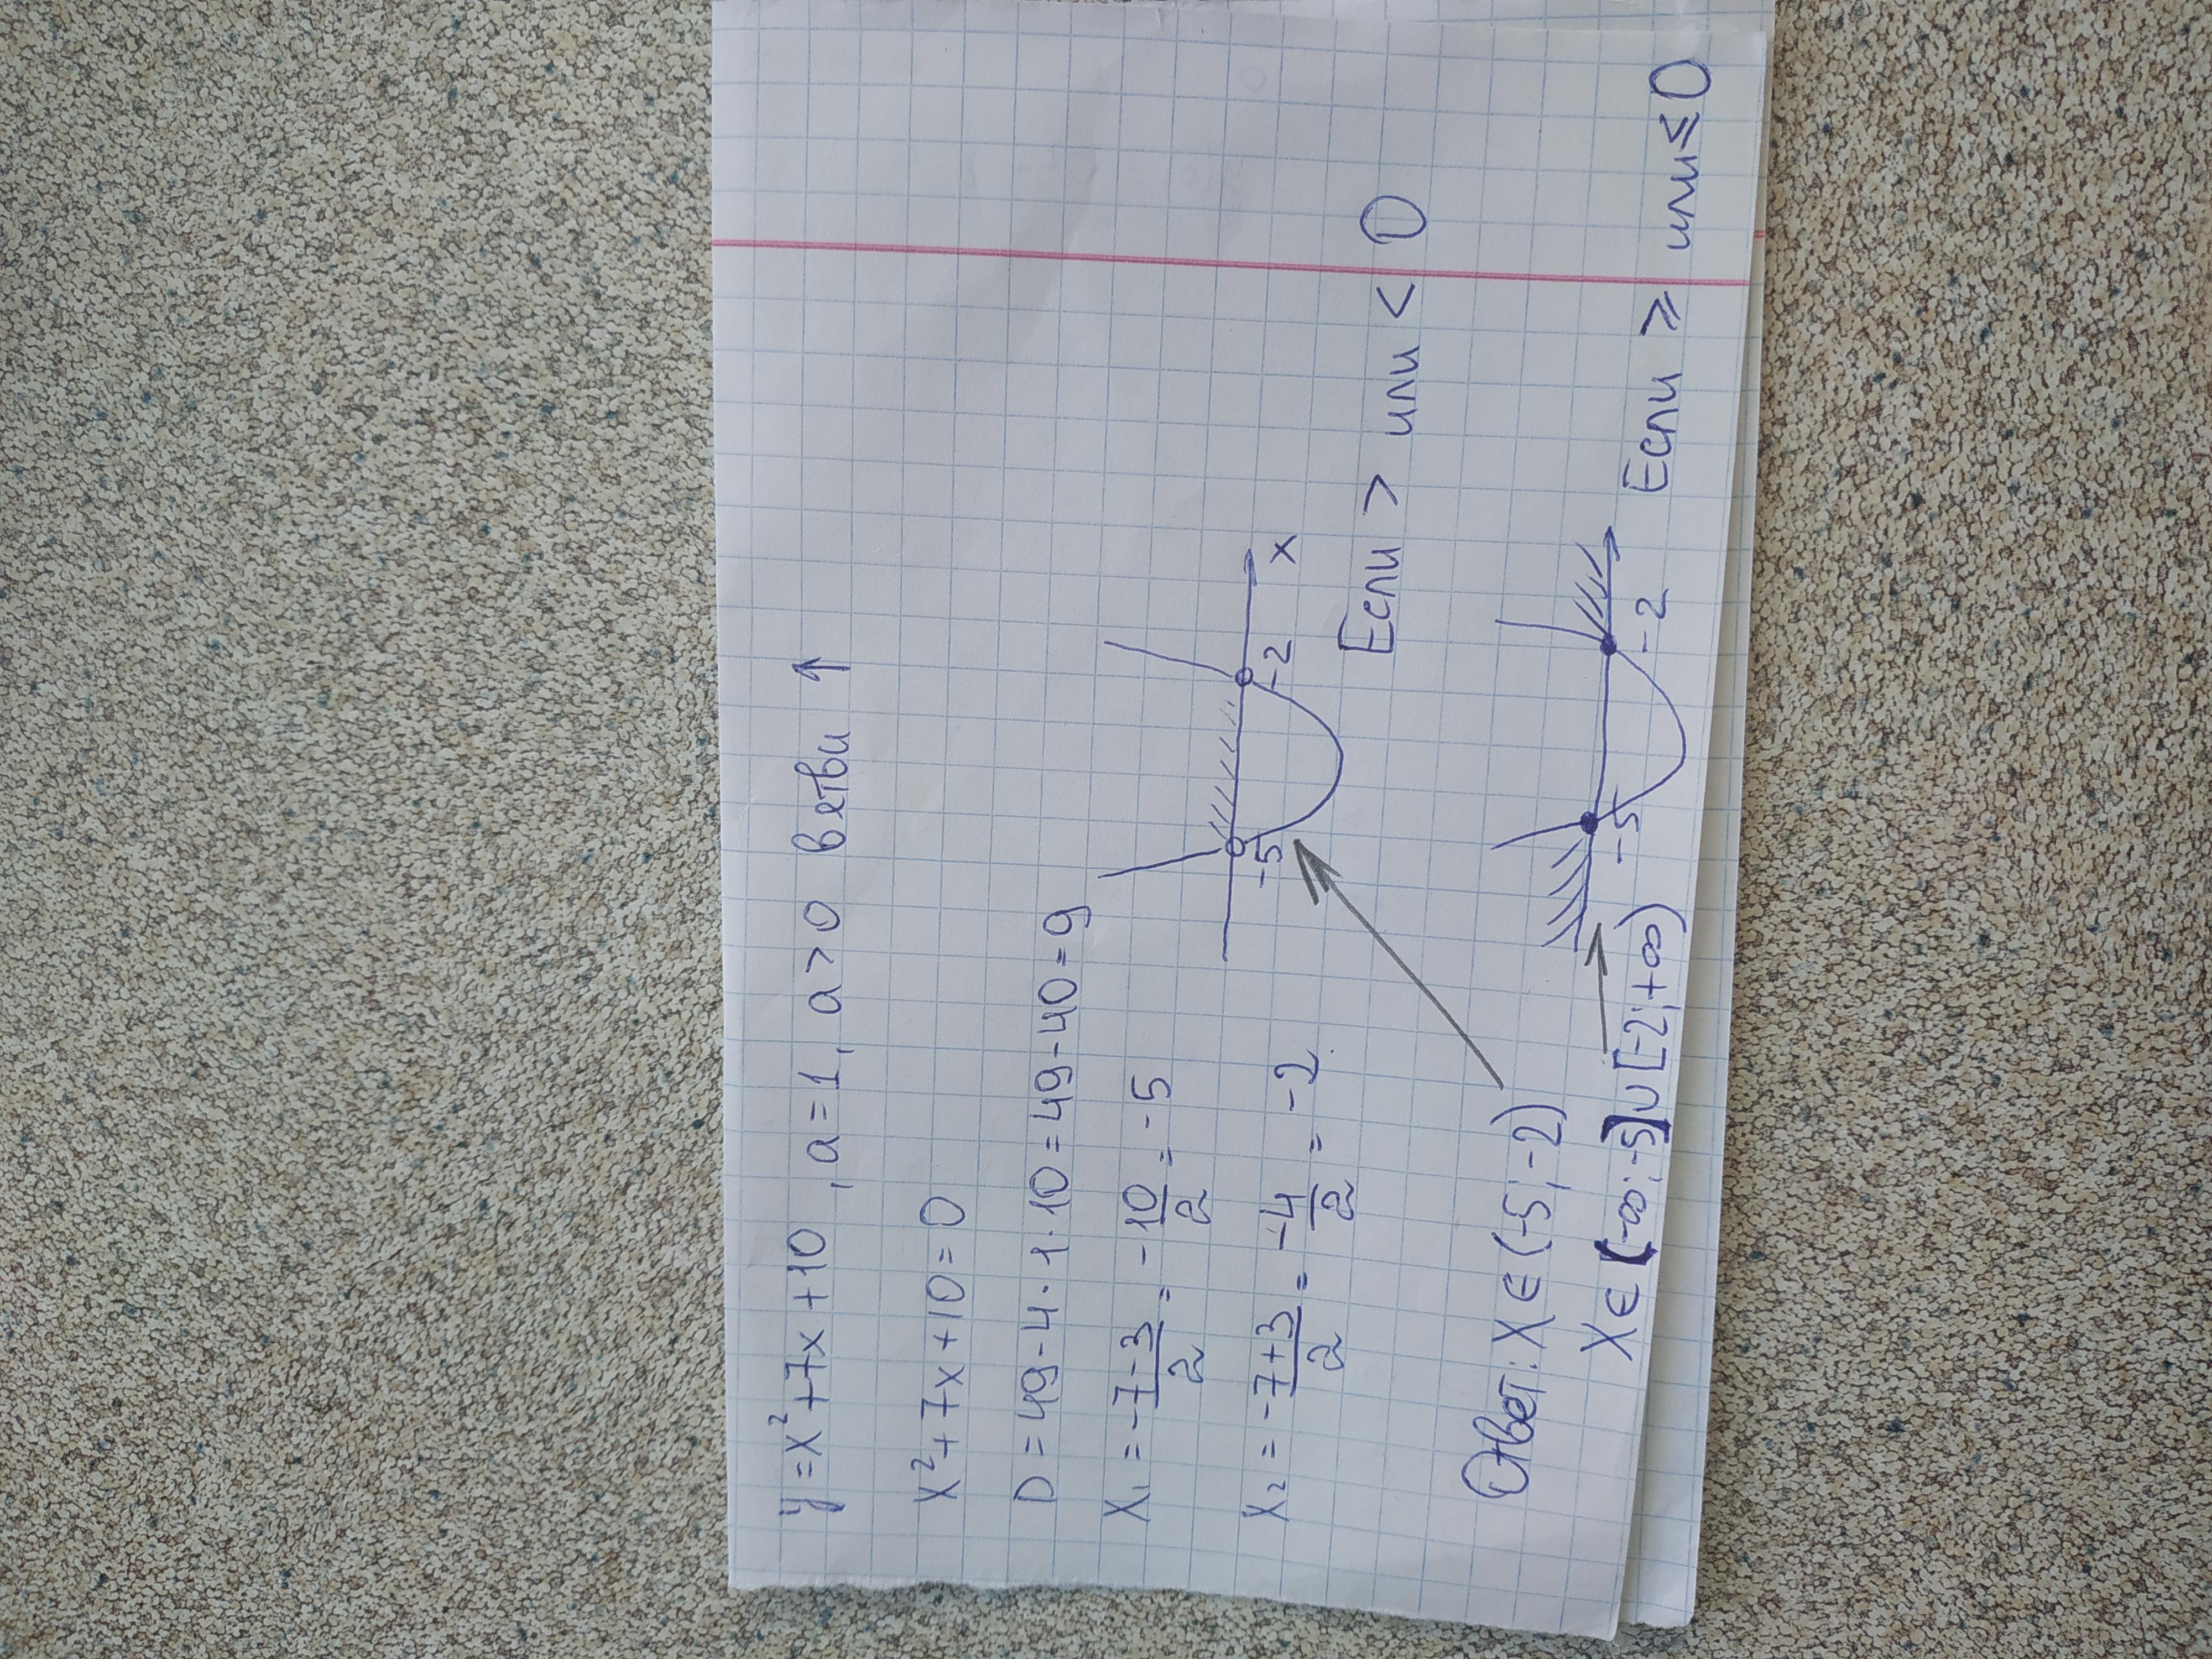 y = x² + 7x + 10 , a = 1, a > 0 ветви ↑
x² + 7x + 10 = 0
D = 49 - 4 · 1 · 10 = 49 - 40 = 9
x₁ = -7-3/2 = -10/2 = -5
x₂ = -7+3/2 = -4/2 = -2
-5 -2 x
Если > или < 0
Ответ: x ∈ (-5; -2)
x ∈ (-∞; -5] ∪ [-2; +∞)
-5 -2
Если ≥ или ≤ 0